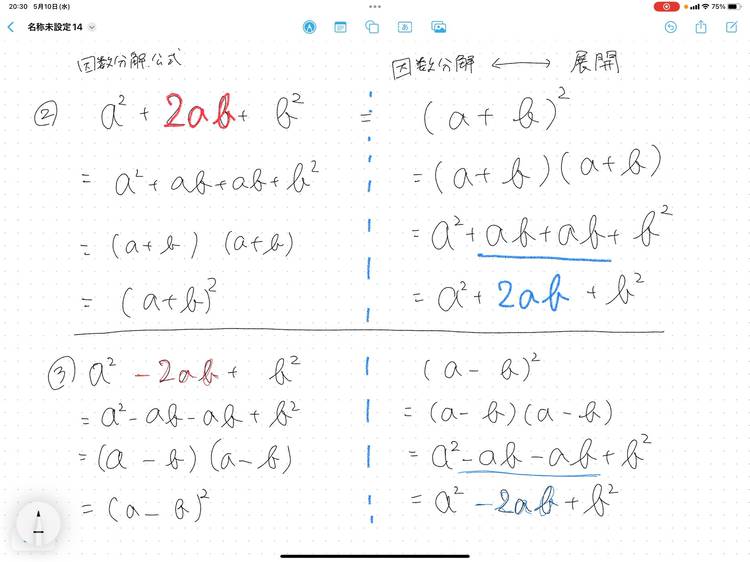 20:30 5月10日(水) 75%
名称未設定14
あ
因数分解公式
② a² + 2ab + b²
= a² + ab + ab + b²
= (a+b) (a+b)
= (a+b)²
因数分解 ⟷ 展開
= (a + b)²
= (a + b)(a + b)
= a² + ab + ab + b²
= a² + 2ab + b²
③ a² - 2ab + b²
= a² - ab - ab + b²
= (a - b)(a - b)
= (a - b)²
(a - b)²
= (a - b)(a - b)
= a² - ab - ab + b²
= a² - 2ab + b²